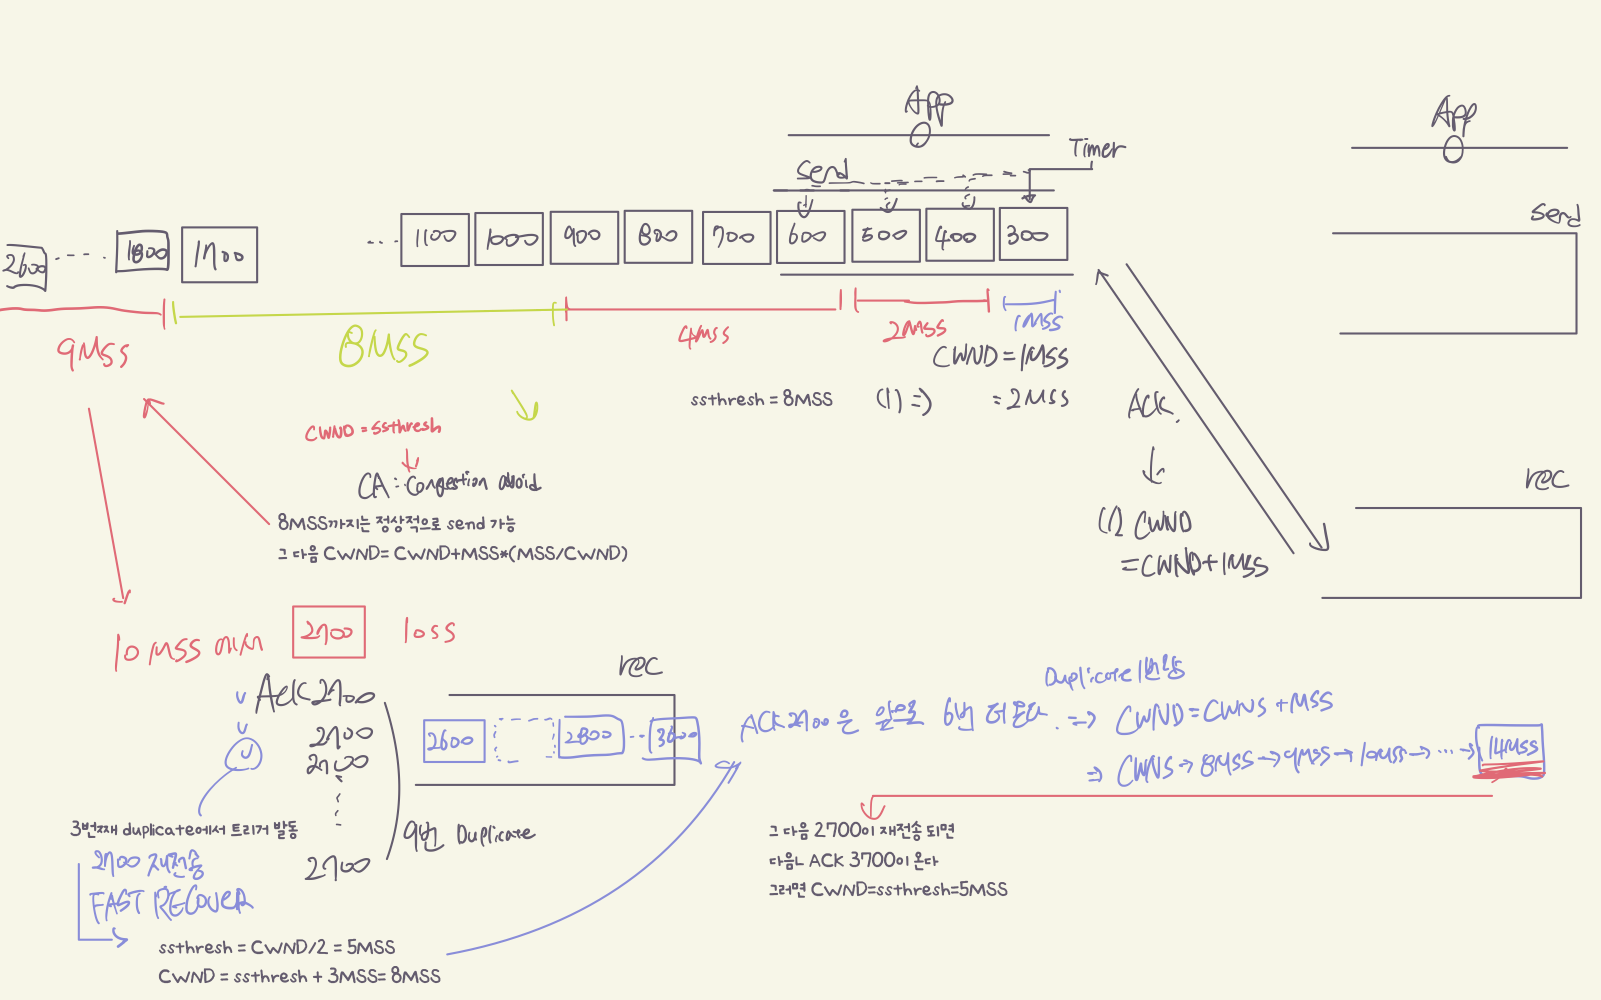 App
App
Timer
Send
Send
2600
1800
1700
1100
1000
900
800
700
600
500
400
300
9MSS
8MSS
4MSS
2MSS
1MSS
CWND = 1MSS
ssthresh = 8MSS
(1) ⇒) = 2MSS
ACK.
CWND = ssthresh
CA : Congestion avoid
rec
(1) CWND
= CWND + 1MSS
8MSS까지는 정상적으로 send 가능
그 다음 CWND= CWND+MSS*(MSS/CWND)
10 MSS 에서
2700
loss
ACK 2700
2700
2700
2700
9번 Duplicate
rec
2600
2800
3600
3번째 duplicate에서 트리거 발동
2700 재전송
FAST RECOVER
ssthresh = CWND/2 = 5MSS
CWND = ssthresh + 3MSS= 8MSS
Duplicate 1번당
ACK 2700은 앞으로 6번 더 온다. ⇒ CWND = CWNS + MSS
⇒ CWNS → 8MSS → 9MSS → 10MSS → ... → 14MSS
그 다음 2700이 재전송 되면
다음 ACK 3700이 온다
그러면 CWND=ssthresh=5MSS